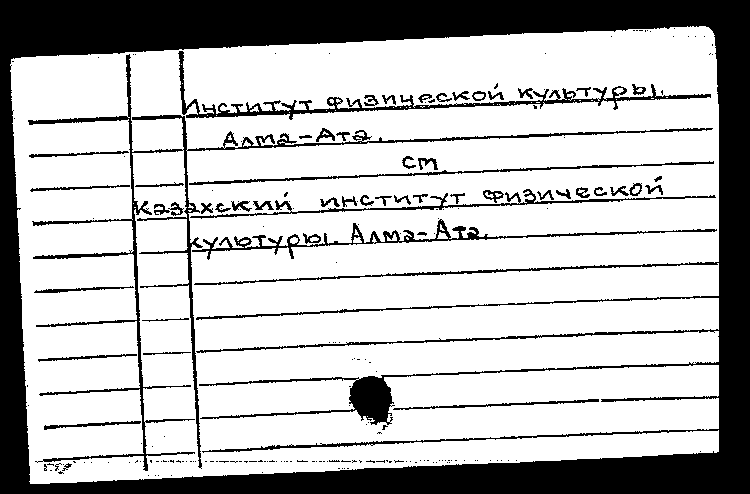 Институт физической культуры.
Алма-Ата.
см.
Казахский институт физической
культуры. Алма-Ата.